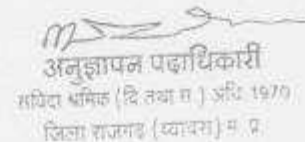 अनुज्ञापन पदाधिकारी
संविदा श्रमिक (वि तथा स ) अधि 1970
जिला राजगढ़ (ब्यावरा) म प्र